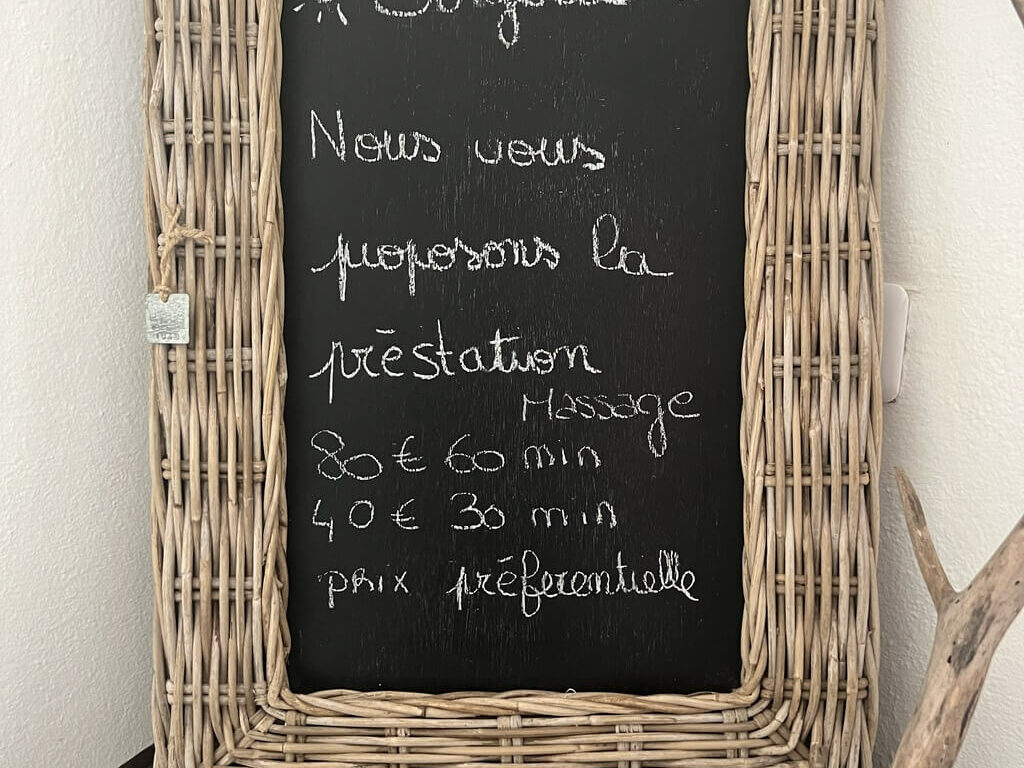 Nous vous
proposons la
préstation
Massage
80 € 60 min
40 € 30 min
prix préferentielle